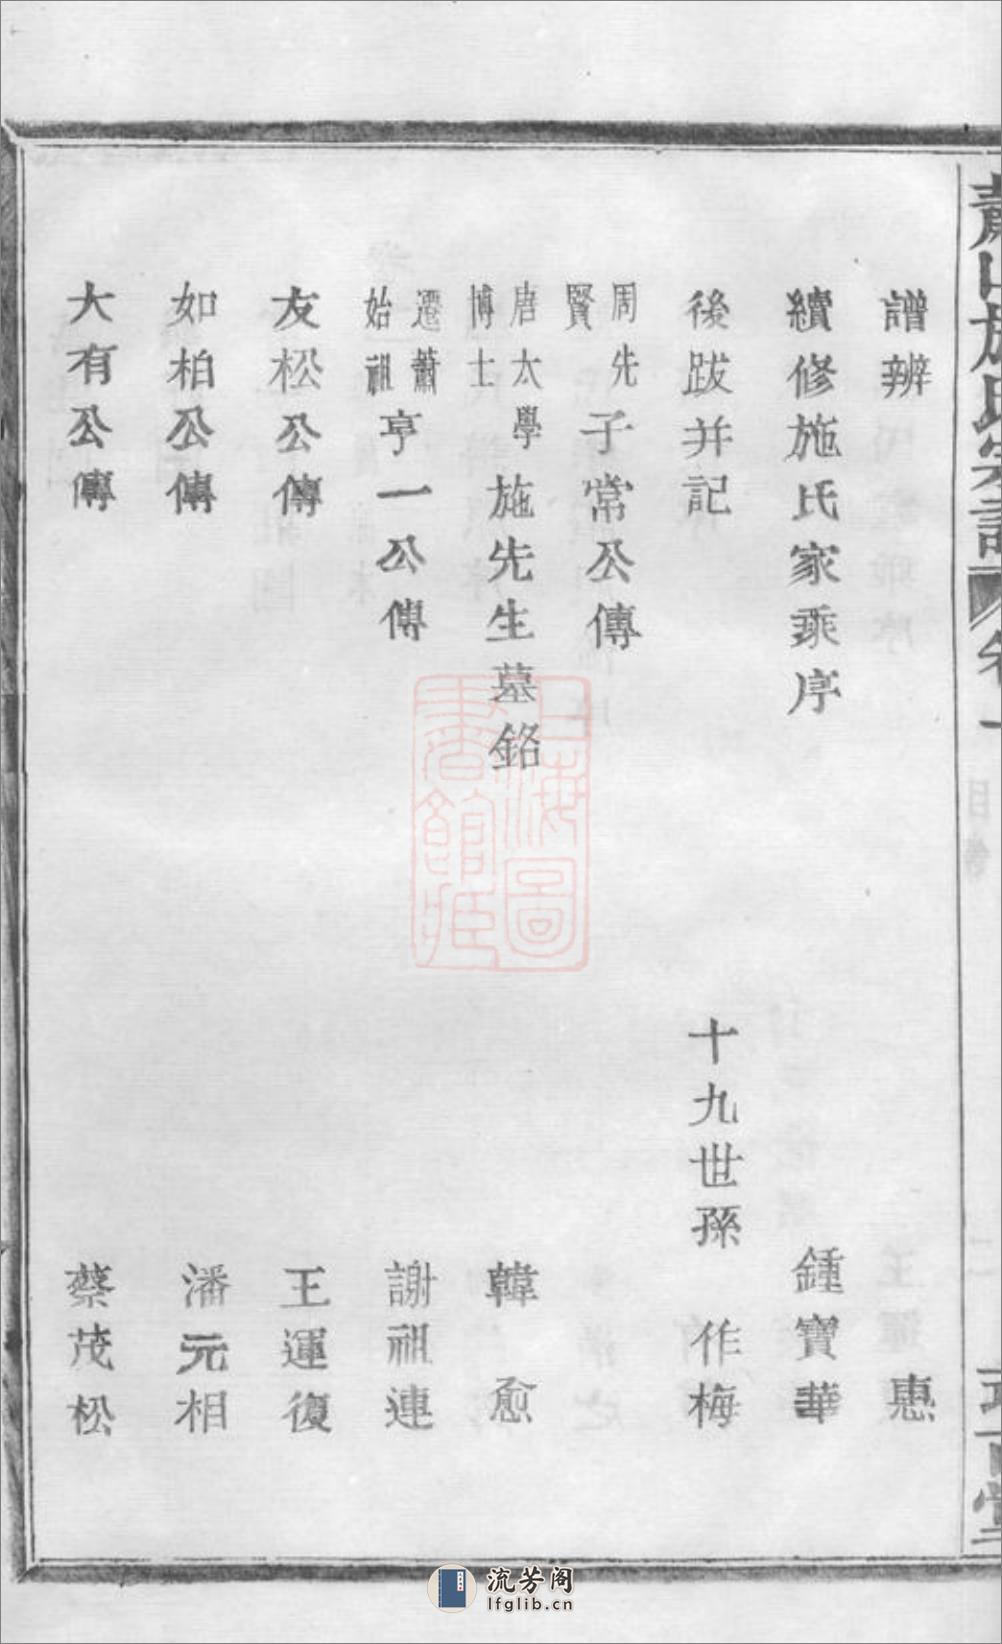 蕭山施氏宗譜 卷一 目
譜辨 惠
續修施氏家乘序 鍾寶華
後跋并記 十九世孫 作梅
周先賢 子常公傳
唐太學博士 施先生墓銘 韓愈
遷蕭始祖 亨一公傳 謝祖連
友松公傳 王運復
如柏公傳 潘元相
大有公傳 蔡茂松
上海圖書館藏
流芳阁
lfglib.cn